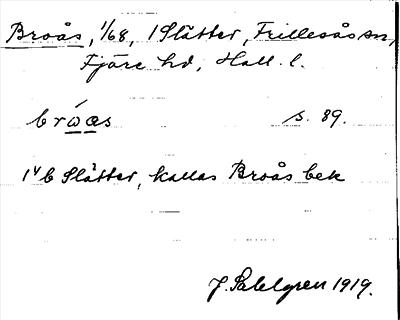 Broås, 1/68, 1 Slätter, Frillesås sn,
Fjäre hd, Hall. l.
brẃas s. 89.
1⁴ b Slätter, kallas Broås bek
J. Sahlgren 1919.